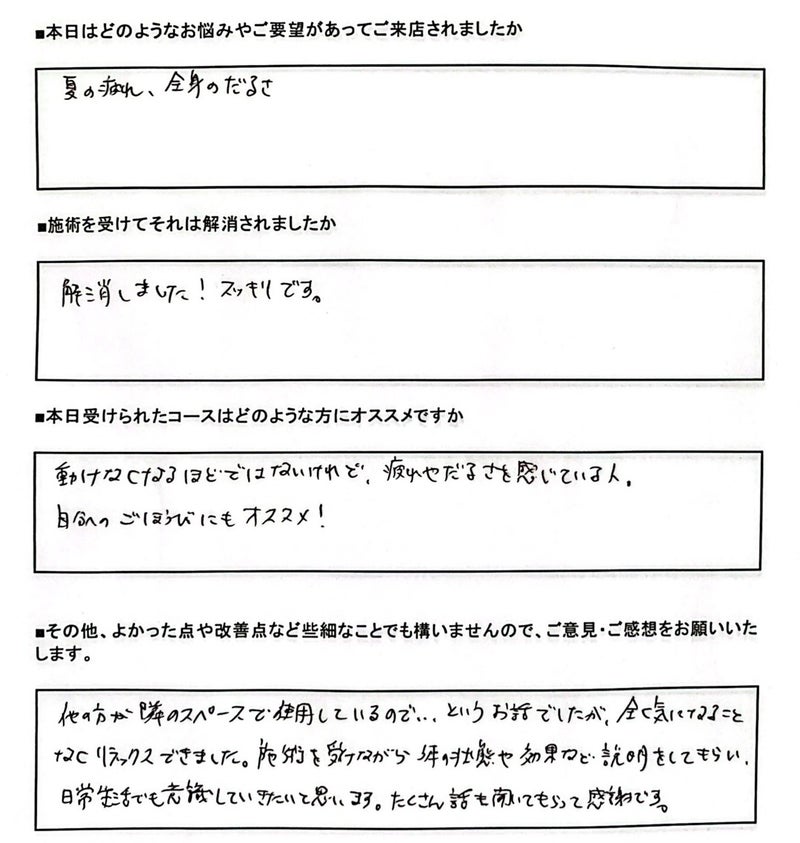 ■本日はどのようなお悩みやご要望があってご来店されましたか
夏の疲れ、全身のだるさ
■施術を受けてそれは解消されましたか
解消しました！スッキリです。
■本日受けられたコースはどのような方にオススメですか
動けなくなるほどではないけれど、疲れやだるさを感じている人。
自分へのごほうびにもオススメ！
■その他、よかった点や改善点など些細なことでも構いませんので、ご意見・ご感想をお願いいた
します。
他の方が隣のスペースで使用しているので... というお話でしたが、全く気になること
なくリラックスできました。施術を受けながら体の状態や効果など説明をしてもらい、
日常生活でも意識していきたいと思います。たくさん話も聞いてもらって感謝です。